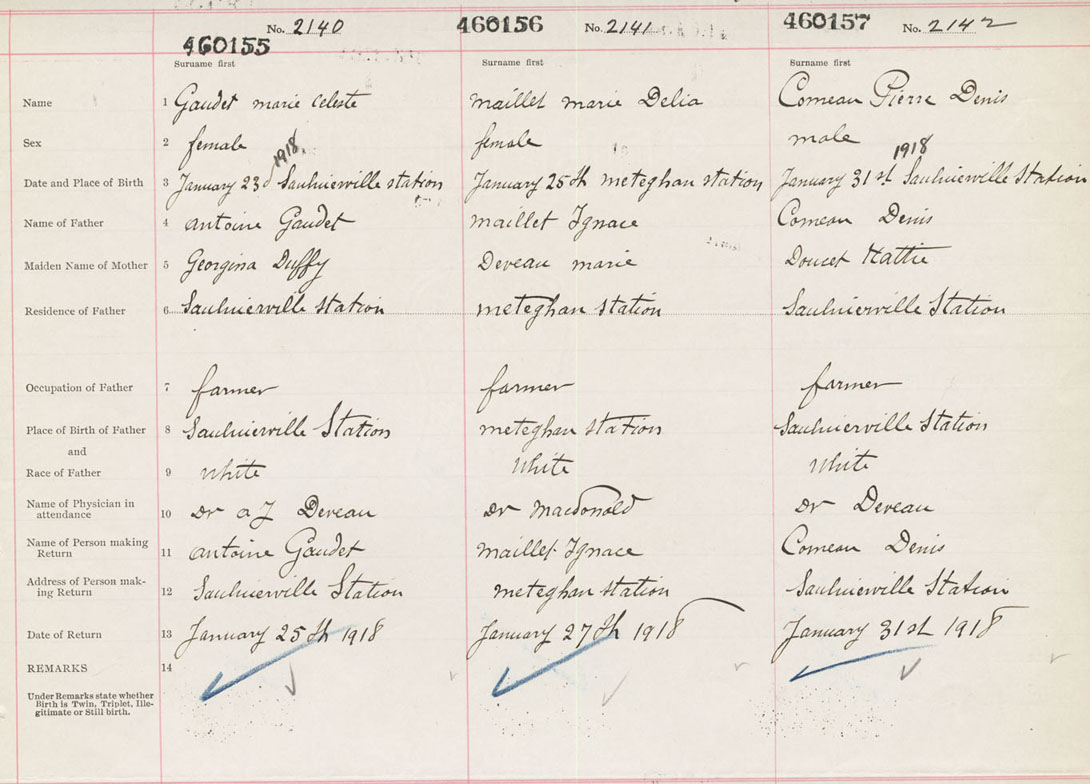 No. 2140 460156 No. 2141 460157 No. 2142
460155
Surname first Surname first Surname first
Name 1 Gaudet marie Celeste maillet marie Delia Comeau Pierre Denis
Sex 2 female female male
1918 1918
Date and Place of Birth 3 January 23d Saulnierville station January 25th meteghan station January 31st Saulnierville Station
Name of Father 4 antoine Gaudet maillet Ignace Comeau Denis
Maiden Name of Mother 5 Georgina Duffy Deveau marie Doucet Hattie
Residence of Father 6 Saulnierville station meteghan station Saulnierville Station
Occupation of Father 7 farmer farmer farmer
Place of Birth of Father 8 Saulnierville Station meteghan station Saulnierville Station
and
Race of Father 9 White White White
Name of Physician in
attendance 10 Dr a J Deveau Dr Macdonald Dr Deveau
Name of Person making
Return 11 antoine Gaudet maillet Ignace Comeau Denis
Address of Person mak-
ing Return 12 Saulnierville Station meteghan station Saulnierville Station
Date of Return 13 January 25th 1918 January 27th 1918 January 31st 1918
REMARKS 14
Under Remarks state whether
Birth is Twin, Triplet, Ille-
gitimate or Still birth.